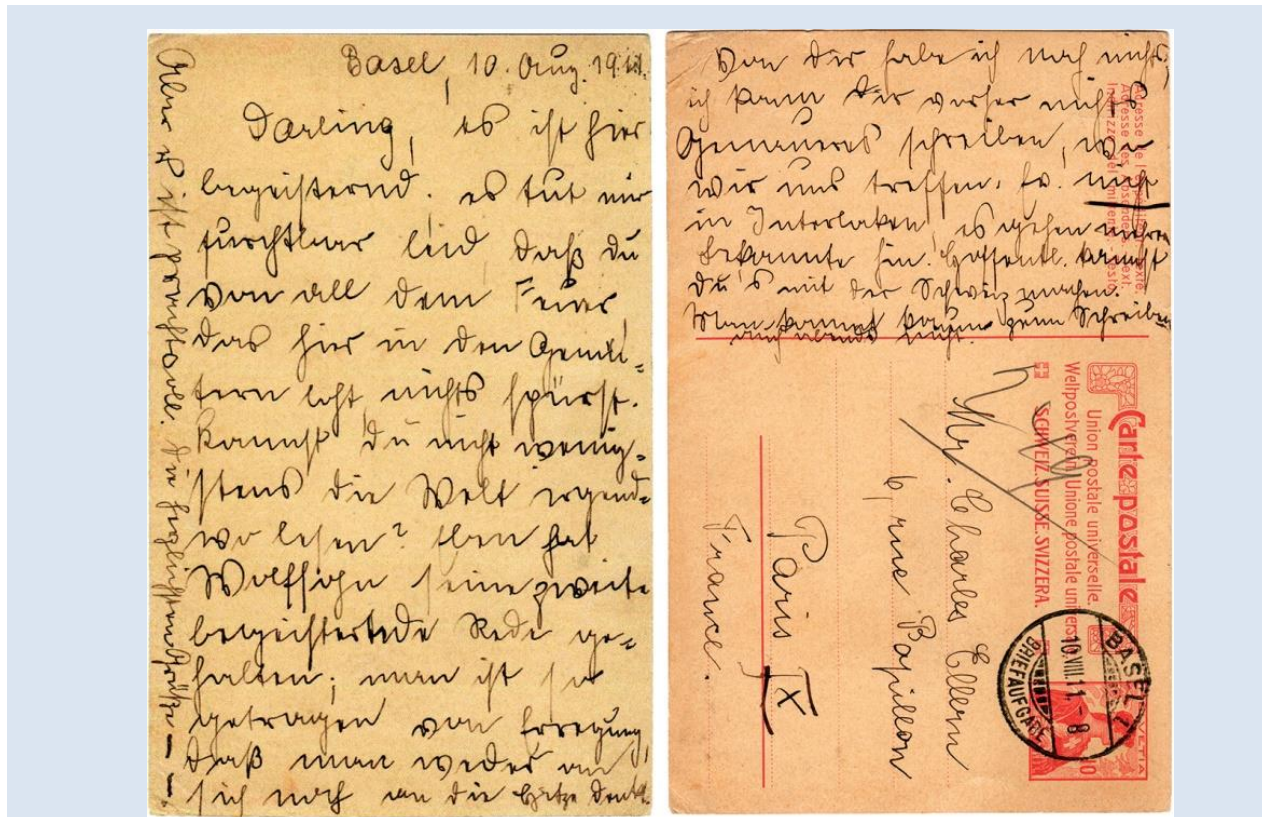 Basel, 10. Aug. 1911.
Darling, es ist hier
begeisternd. es tut mir
furchtbar leid daß du
von all dem Feuer,
das hier in den Gemü=
tern loht, nichts spürst.
Kannst du nicht wenig=
stens die Welt irgend=
wo lesen? Eben hat
Wolffsohn seine zweite
Rede ge=
halten; man ist so
getragen von Erregung,
daß man weder an
sich noch an die Hitze denkt.
Aber es ist prachtvoll. Die herzlichsten Grüße — —
Von dir habe ich noch nichts,
ich kann dir vorher nichts
Genaueres schreiben, wo
wir uns treffen. Ev. nicht
in Interlaken, es gehen
Bekannte hin. Hoffentl. kannst
du's mit der Schweiz machen.
Man kommt kaum zum Schreiben
auch abends nicht.
Carte postale
Union postale universelle.
Weltpostverein Unione postale
SCHWEIZ. SUISSE. SVIZZERA.
Mr. Charles Ellern
6, rue Papillon
Paris IX
France.
BASEL 1
10.VIII.11.-8
BRIEFAUFGABE
10